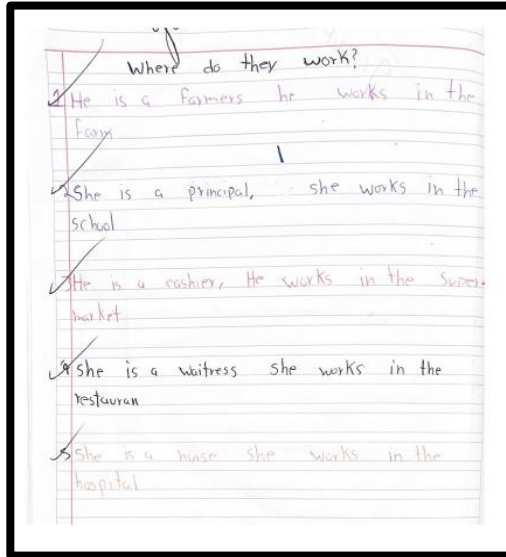 Where do they work?
1 He is a farmers he works in the
farm
2 She is a principal, she works in the
school
3 He is a cashier, He works in the super-
market
4 she is a waitress she works in the
restauran
5 She is a nurse she works in the
hospital